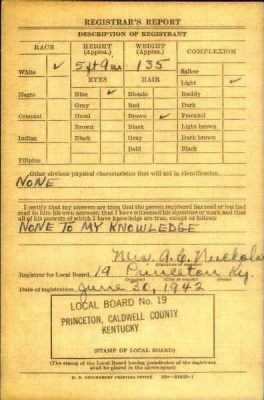 REGISTRAR'S REPORT
DESCRIPTION OF REGISTRANT
RACE HEIGHT (Approx.) WEIGHT (Approx.) COMPLEXION
White ✓ 5 ft 9 in. 135 Sallow
Light ✓
EYES HAIR
Negro Blue ✓ Blonde Ruddy
Gray Red Dark
Oriental Hazel Brown ✓ Freckled
Brown Black Light brown
Indian Black Gray Dark brown
Bald Black
Filipino
Other obvious physical characteristics that will aid in identification
NONE
I certify that my answers are true; that the person registered has read or has had
read to him his own answers; that I have witnessed his signature or mark and that
all of his answers of which I have knowledge are true, except as follows:
NONE TO MY KNOWLEDGE
Mrs. A. C. Nuckols
Registrar for Local Board 19 Princeton Ky.
Date of registration June 30, 1942
LOCAL BOARD No. 19
PRINCETON, CALDWELL COUNTY
KENTUCKY
(STAMP OF LOCAL BOARD)
(The stamp of the Local Board having jurisdiction of the registrant
shall be placed in the above space)
U. S. GOVERNMENT PRINTING OFFICE